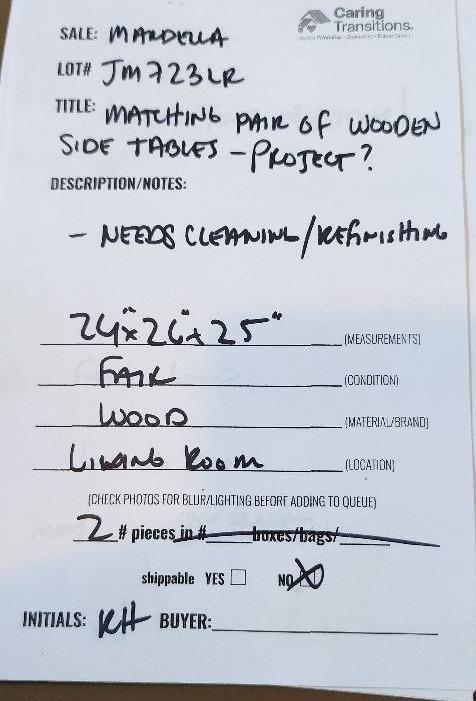 Caring
Transitions.
SALE: MANDELLA
LOT# JM723LR
TITLE: MATCHING PAIR OF WOODEN
SIDE TABLES - PROJECT?
DESCRIPTION/NOTES:
- NEEDS CLEANING/REFINISHING
24"x26"x25" (MEASUREMENTS)
FAIR (CONDITION)
WOOD (MATERIAL/BRAND)
LIVING ROOM (LOCATION)
(CHECK PHOTOS FOR BLUR/LIGHTING BEFORE ADDING TO QUEUE)
2 # pieces in # boxes/bags/
shippable YES NO
INITIALS: KH BUYER: